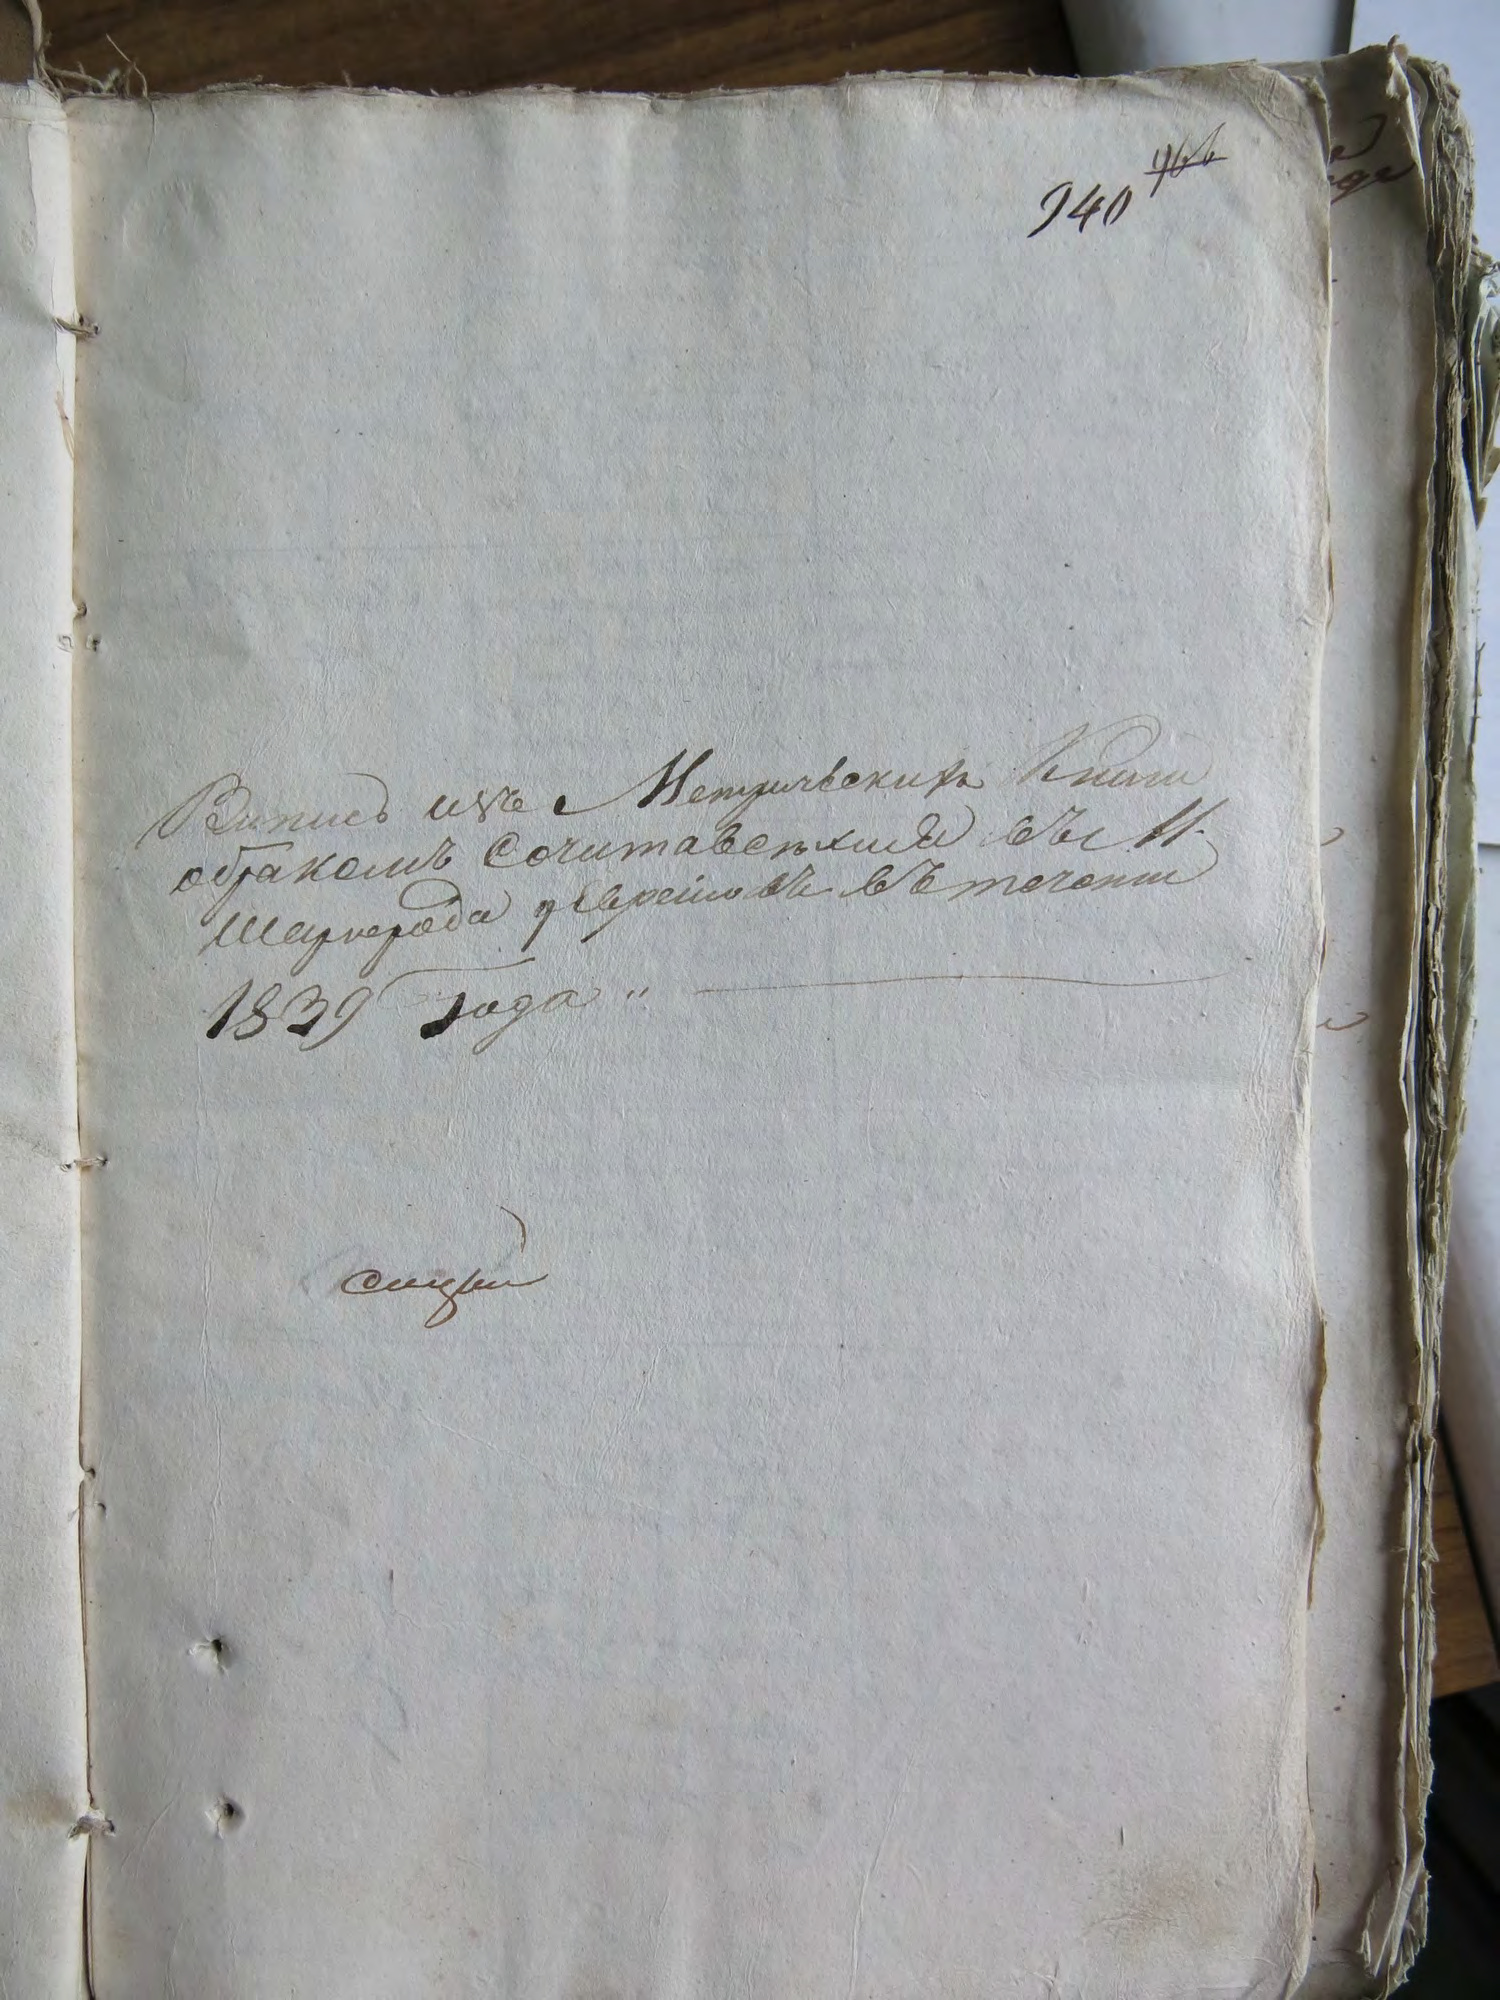 940
Випись изъ Метрическихъ Книги
обракомъ Сочитавшихся въ М.
Шаргорода уЕврейовъ въ течении
1839 года "